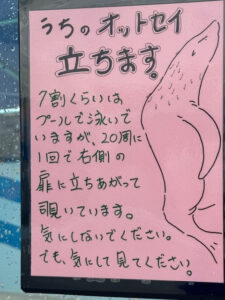 うちの オットセイ
立ちます。
7割くらいは
プールで泳いで
いますが、20周に
1回で右側の
扉に立ちあがって
覗いています。
気にしないでください。
でも、気にして見てください。